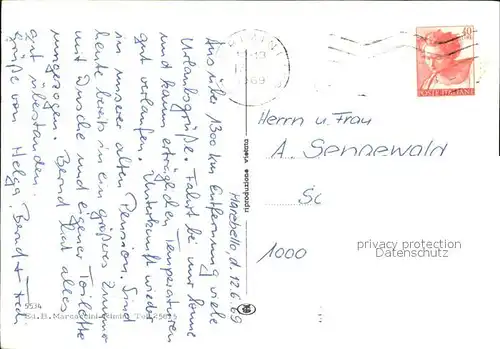 Marebello, d. 12.6.69
Aus über 1300 km Entfernung viele
Urlaubsgrüße. Fahrt bei nur Sonne
und kaum erträglichen Temperaturen
gut verlaufen. Unterkunft wieder
in unserer alten Pension. Sind
heute bereits in ein größeres Zimmer
mit Dusche und eigener Toilette
umgezogen. Bernd hat alles
gut überstanden.
Grüße von Helga, Bernd +
5534
tipocoduzione
40
POSTE ITALIANE
Herrn u. Frau
A. Sennewald
Sc
1000
privacy protection
Datenschutz